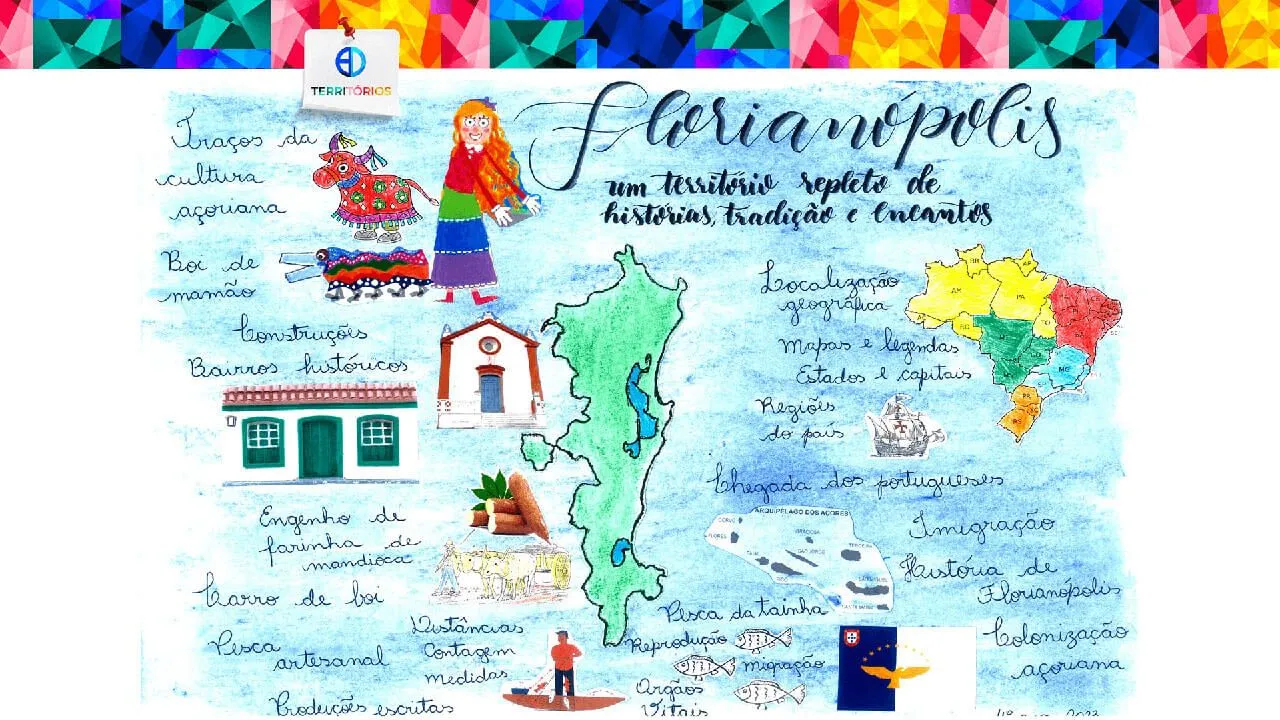 TERRITÓRIOS
Florianópolis
um território repleto de
histórias, tradição e encantos
Traços da
cultura
açoriana
Boi de
mamão
Construções
Bairros históricos
Engenho de
farinha de
mandioca
Carro de boi
Pesca
artesanal
Distâncias
Contagem
medidas
Produções escritas
Localização
geográfica
Mapas e legendas
Estados e capitais
Regiões
do país
RR
AP
AM
PA
RO
TO
MT
GO
MG
PR
SC
RS
Chegada dos portugueses
ARQUIPÉLAGO DOS AÇORES
CORVO
FLORES
GRACIOSA
TERCEIRA
FAIAL
SÃO JORGE
PICO
SÃO MIGUEL
SANTA MARIA
Imigração
História de
Florianópolis
Colonização
açoriana
Pesca da tainha
Reprodução
migração
Orgãos
Vitais